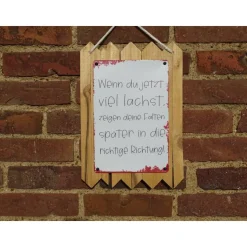 Wenn du jetzt
viel lachst,
zeigen deine Falten
später in die
richtige Richtung!